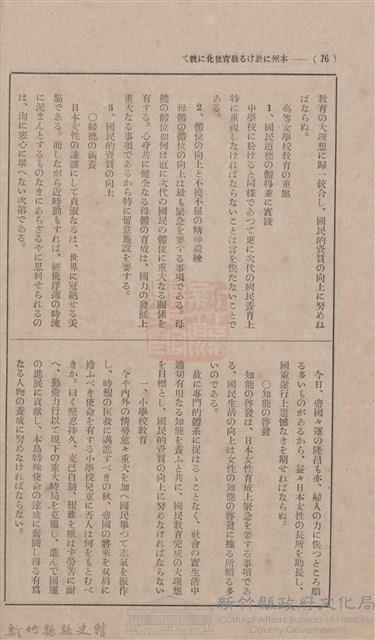 (76)——本州に於ける敎育敎化に就て
敎育の大理想に歸一統合し、國民的資質の向上に努めね
ばならぬ。
高等女學校敎育の重點
1、國民道德の體得並に實踐
中學校に於けると同樣であつて更に次代の國民養育上
特に重視しなければならないことは言を俟たないことで
ある。
2、體位の向上と不撓不屈の精神鍛練
母體の體位の向上は最も緊急を要する事項である。母
體の體位如何は直に次代の國民の體位に重大なる關係を
有する。心身共に健全なる母體の育成は、國力の發展上
重大なる事項であるから特に留意施設を要する。
3、國民的資質の向上
〇婦德の涵養
日本女性の謙讓にして貞淑なるは、世界に冠絕せる美
點である。而しながら近時動もすれば、輕佻浮薄の時流
に泥まんとするものなきにあらざるやに思料せらるるの
は、洵に寒心に堪へない次第である。
今日、帝國々運の隆昌も亦、婦人の力に俟つところ頗
る多いものがあるから、益々日本女性の長所を助長し、
國策遂行上遺憾なきを期せねばならぬ。
〇知能の啓發
知能の啓發は、日本女性育成上緊急を要する事項であ
る、國民生活の向上は女性の知能の啓發に據る所頗る多
いのである。
故に專門的體系に捉はるゝことなく、社會の實生活中
適切有用なる知能を養ふと共に、國民敎育完成の大理想
を目標とし、國民的資質の向上に努めなければならない
一、小學校敎育
今や內外の情勢愈々重大を加へ國民擧つて志氣を振作
し、時艱の匡救に邁進すべきの秋、帝國の將來を双肩に
擔ふべき使命を有する小學校兒童に吾人は何をもとむべ
きか。曰く堅忍持久、克己自制、艱難を厭はず勞苦に耐
へ、勤儉力行以て現下の重大時局を克服し、進んで國運
の進展に貢獻し、本島特殊使命の達成に奮鬪し得る有爲
なる人物の養成に努めなければならない。
新竹縣政府文化局
Cultural Affairs Bureau of Hsinchu
County Government
新竹縣縣史館